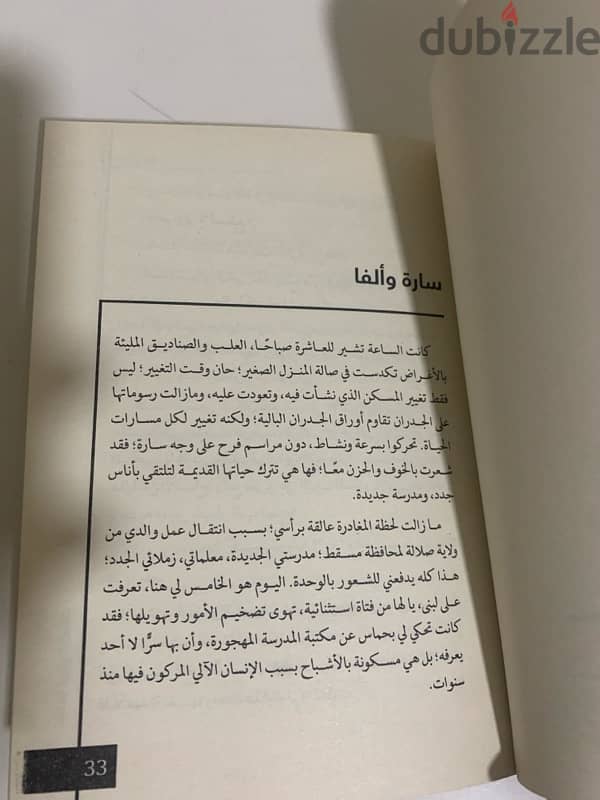 dubizzle
سارة وألفا
كانت الساعة تشير للعاشرة صباحًا، العلب والصناديق المليئة
بالأغراض تكدست في صالة المنزل الصغير؛ حان وقت التغيير؛ ليس
فقط تغيير المسكن الذي نشأت فيه، وتعودت عليه، ومازالت رسوماتها
على الجدران تقاوم أوراق الجدران البالية؛ ولكنه تغيير لكل مسارات
الحياة. تحركوا بسرعة ونشاط، دون مراسم فرح على وجه سارة؛ فقد
شعرت بالخوف والحزن معًا؛ فها هي تترك حياتها القديمة لتلتقي بأناس
جدد، ومدرسة جديدة.
مازالت لحظة المغادرة عالقة برأسي؛ بسبب انتقال عمل والدي من
ولاية صلالة لمحافظة مسقط؛ مدرستي الجديدة، معلماتي، زملائي الجدد؛
هذا كله يدفعني للشعور بالوحدة. اليوم هو الخامس لي هنا، تعرفت
على لبنى، يا لها من فتاة استثنائية، تهوى تضخيم الأمور وتهويلها؛ فقد
كانت تحكي لي بحماس عن مكتبة المدرسة المهجورة، وأن بها سرًّا لا أحد
يعرفه؛ بل هي مسكونة بالأشباح بسبب الإنسان الآلي المركون فيها منذ
سنوات.
33